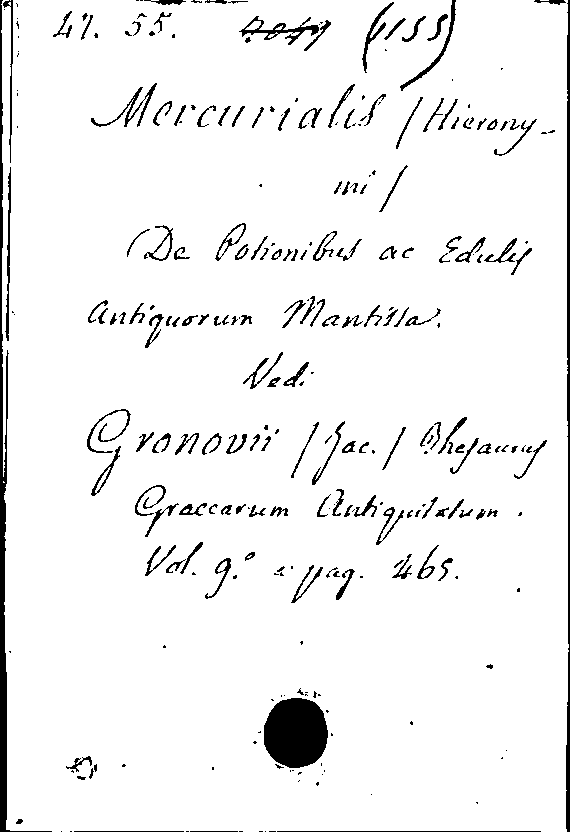 47. 55. 7049 (VI55)
Mercurialis / Hierony-
mi /
De Potionibus ac Edulis
Antiquorum Mantissa.
Vedi
Gronovii / Jac. / Thesaurus
Graecarum Antiquitatum.
Vol. 9.º a pag. 465.